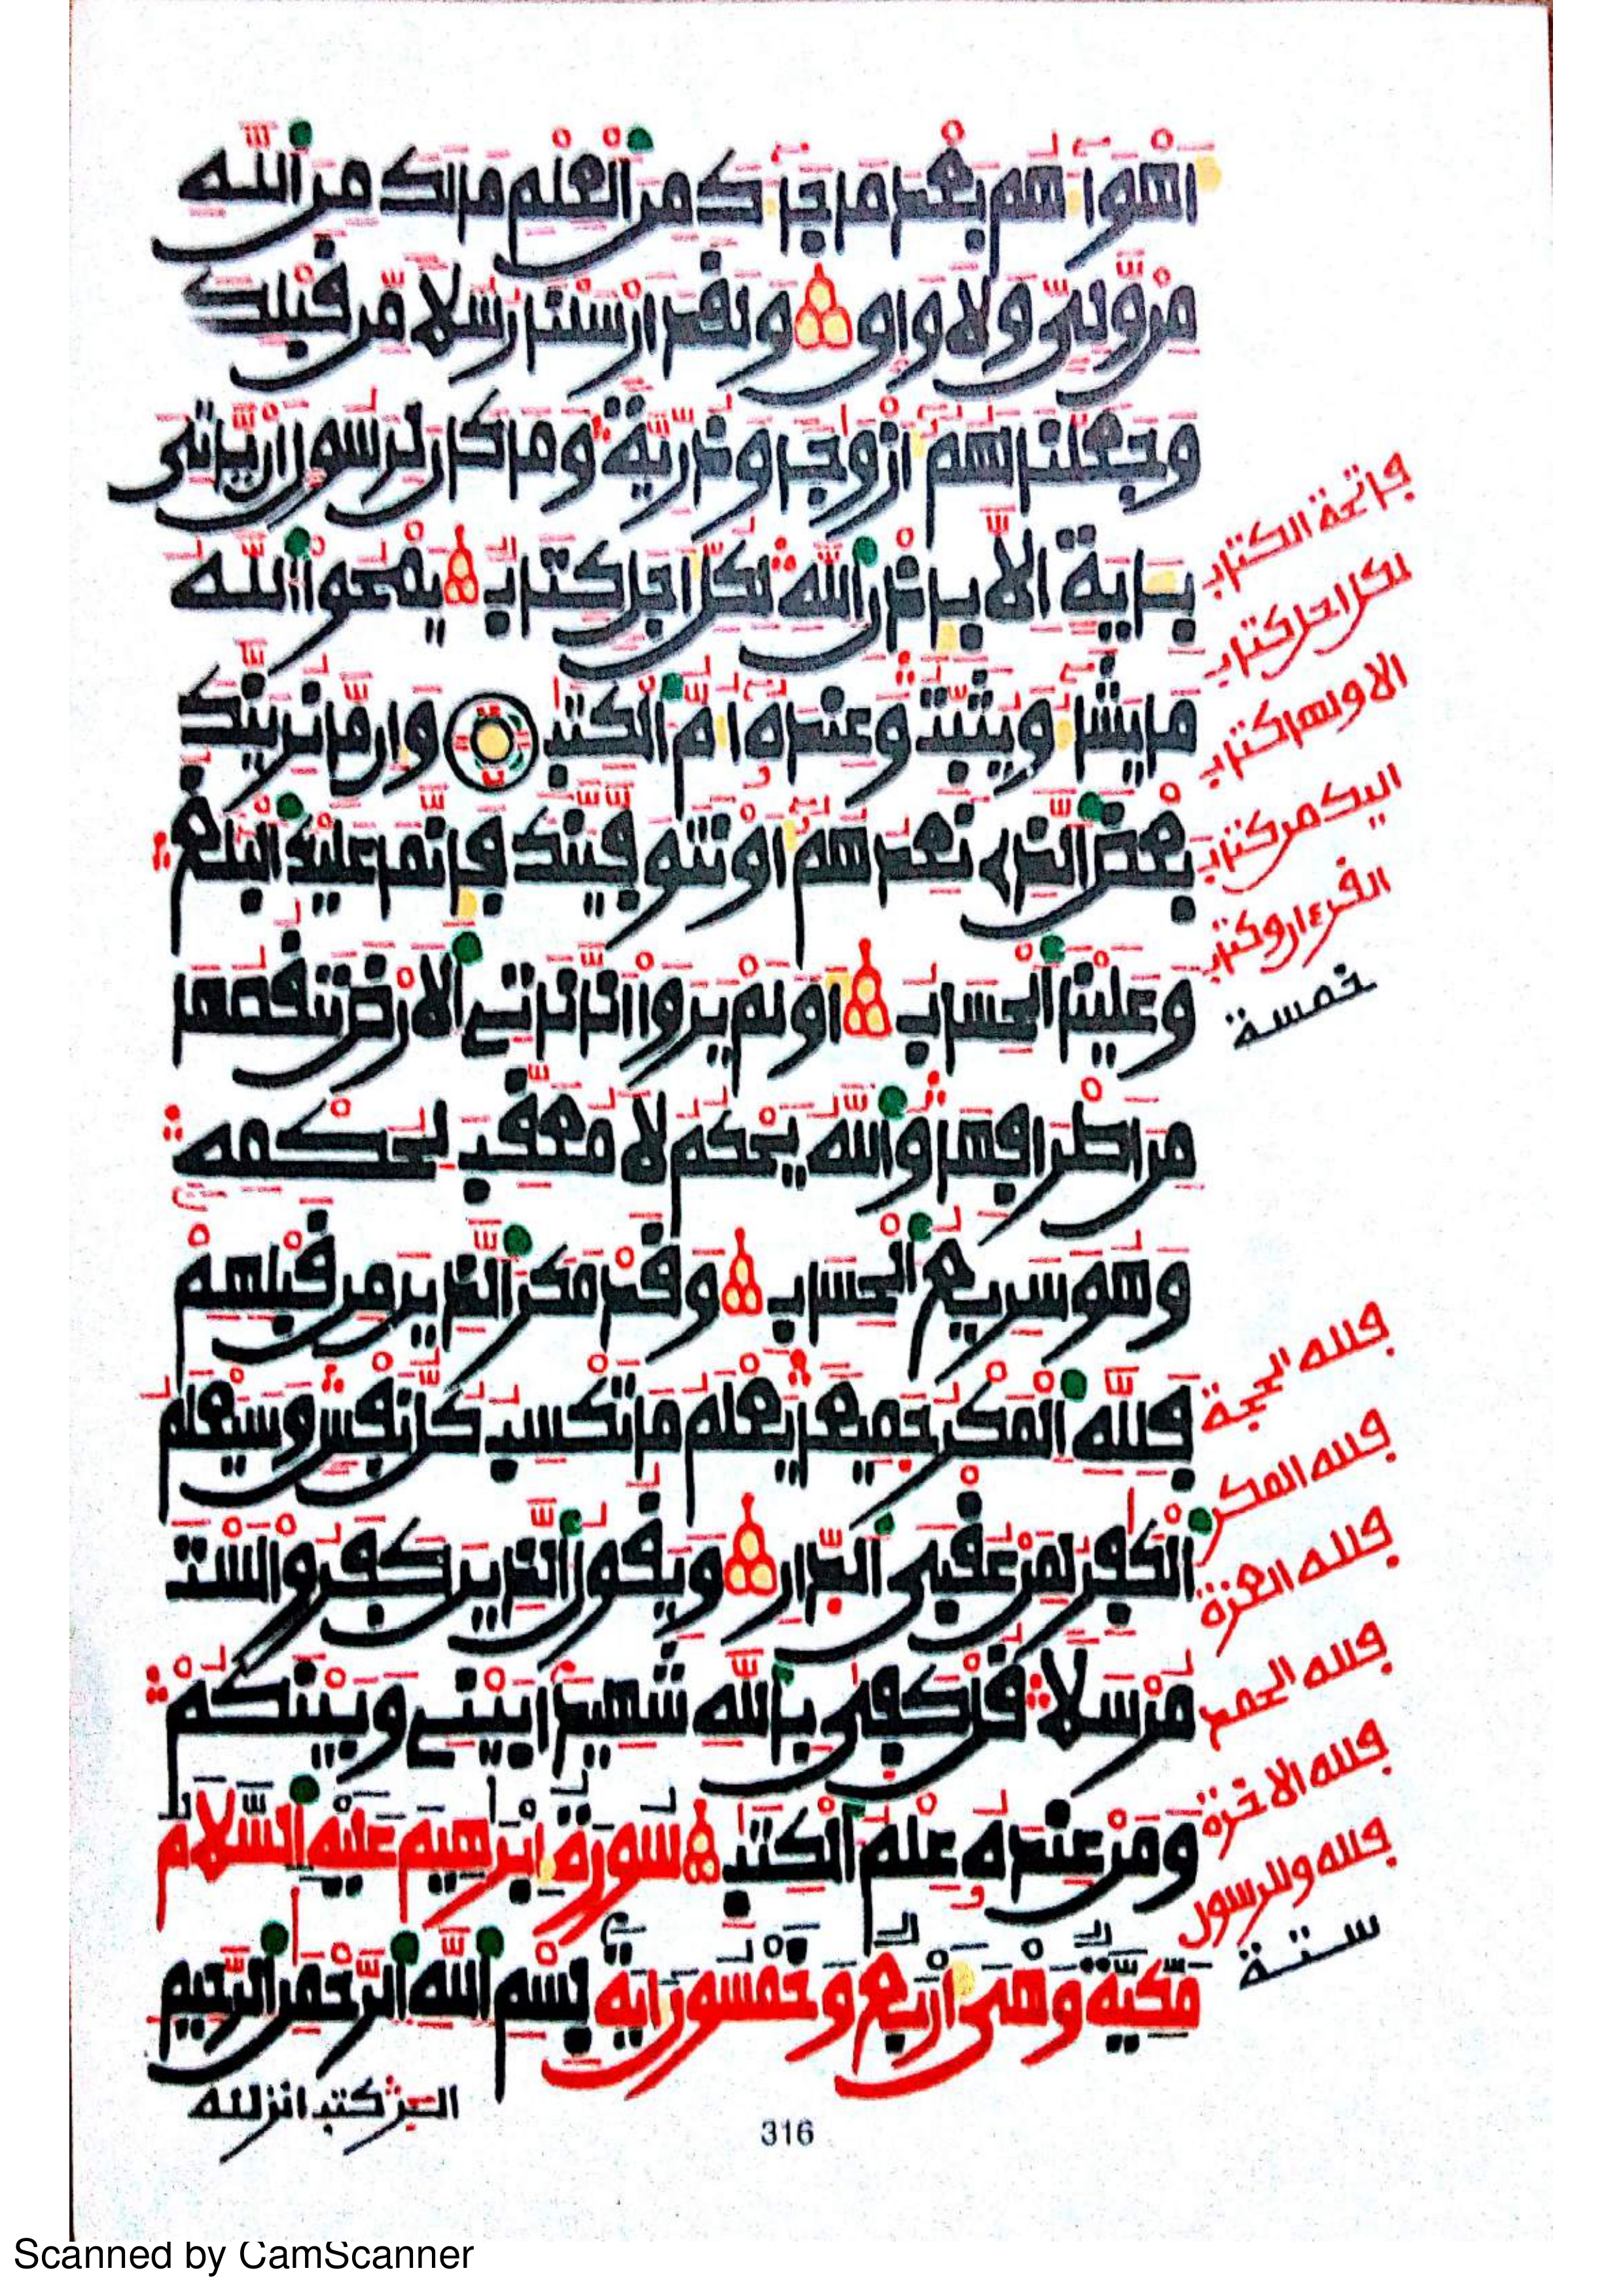 أهوآءهم بعد ما جآءك من ٱلعلم ما لك من ٱلله
من ولي ولا واق ولقد أرسلنا رسلا من قبلك
وجعلنا لهم أزوجا وذرية وما كان لرسول أن ياتي
بـٔاية الا بإذن ٱلله لكل أجل كتاب يمحوا ٱلله
ما يشآء ويثبت وعنده أم ٱلكتب وإن ما نرينك
بعض ٱلذے نعدهم أو نتوفينك فإنما عليك ٱلبلغ
وعلينا ٱلحساب أو لم يروا انا ناتے ٱلارض ننقصها
من اطرافها وٱلله يحكم لا معقب لحكمه
وهو سريع ٱلحساب وقد مكر ٱلذين من قبلهم
فلله ٱلمكر جميعا يعلم ما تكسب كل نفس وسيعلم
ٱلكفر لمن عقبى ٱلدار ويقول ٱلذين كفروا لست
مرسلا قل كفى بٱلله شهيدا بينے وبينكم
ومن عنده علم ٱلكتب سورة إبرهيم عليه ٱلسلام
مكية وهى أربع وخمسون ءاية بسم ٱلله ٱلرحمن ٱلرحيم
الر كتب انزلنه
فاتحة الكتاب
لكل اجل كتاب
الا ولها كتاب
اليك من كتاب
القرءان وكتاب
خمسة
فلله الحجة
فلله المكر
فلله العزة
فلله الحمد
فلله الاخرة
فلله وللرسول
ستة
316
Scanned by CamScanner